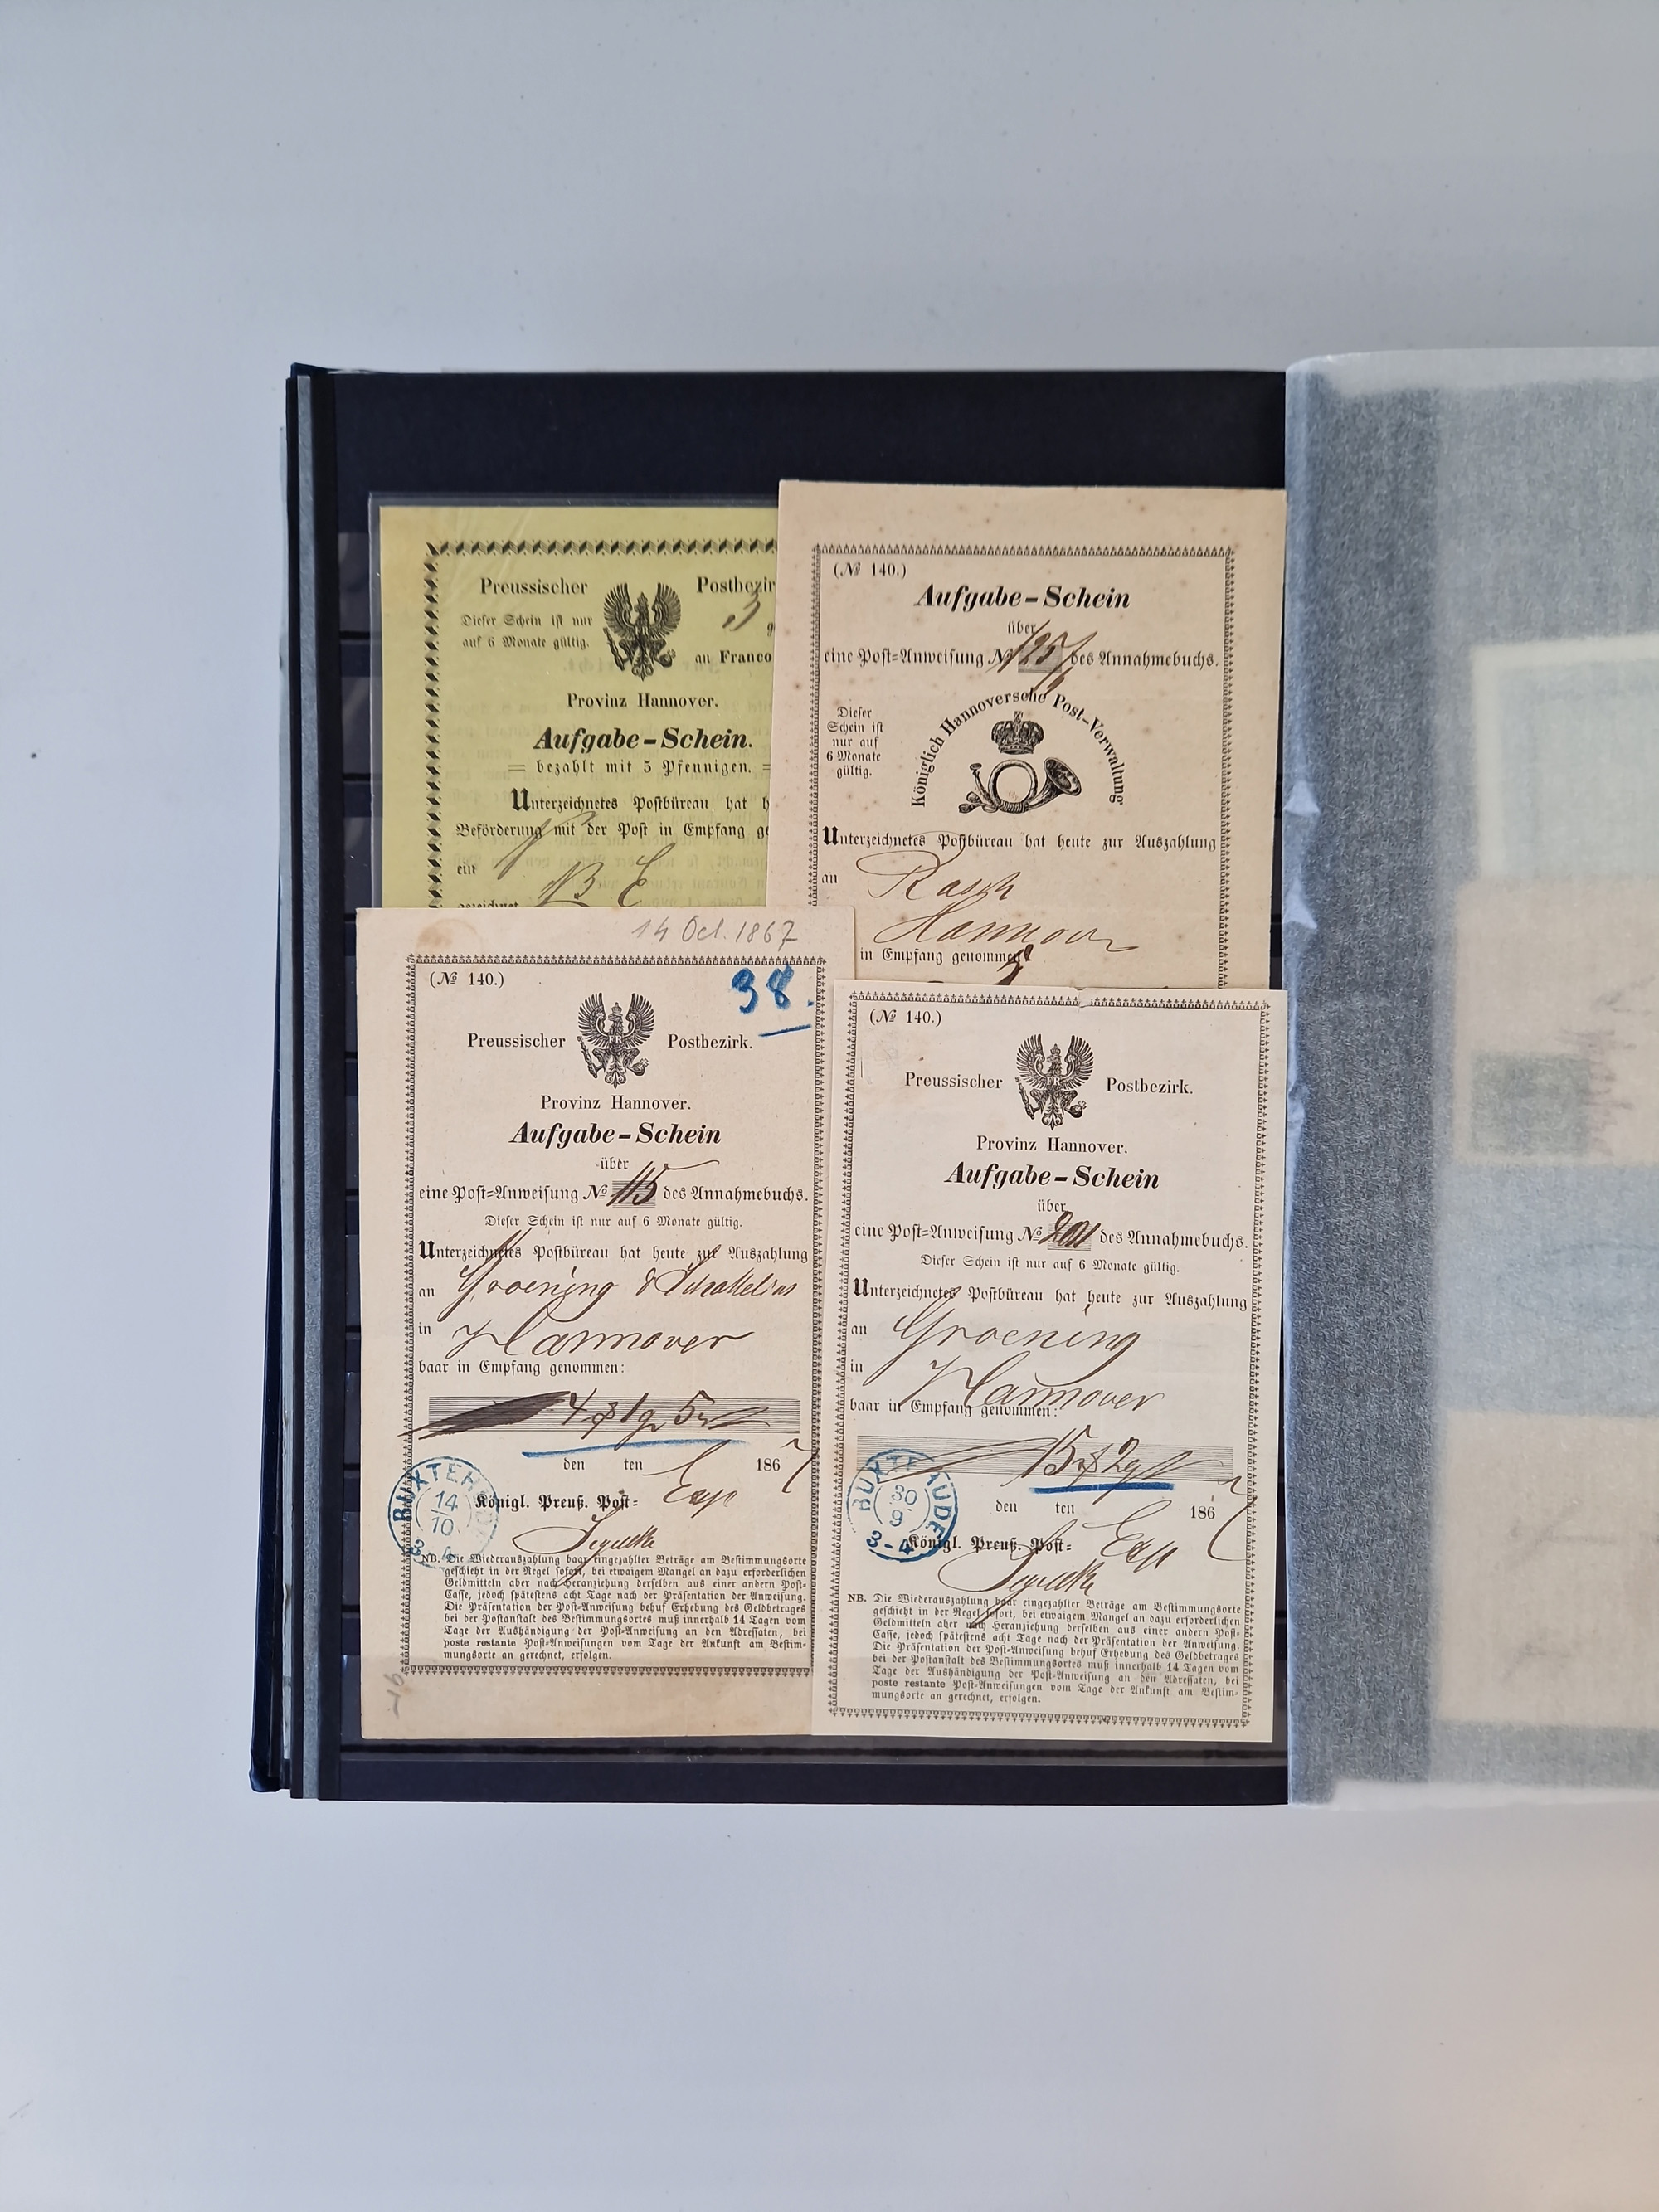 Preussischer Postbezir
Dieser Schein ist nur
auf 6 Monate gültig.
3
g
an Franco
Provinz Hannover.
Aufgabe-Schein.
bezahlt mit 5 Pfennigen.
Unterzeichnetes Postbüreau hat h
Beförderung mit der Post in Empfang ge
ein
gezeichnet B E
(№ 140.)
Aufgabe-Schein
über
eine Post-Anweisung № 125 des Annahmebuchs.
Dieser
Schein ist
nur auf
6 Monate
gültig.
Königlich Hannoversche Post-Verwaltung
Unterzeichnetes Postbüreau hat heute zur Auszahlung
an Rasch
Hannover
in Empfang genommen
14 Oct. 1867
(№ 140.)
38.
Preussischer Postbezirk.
Provinz Hannover.
Aufgabe-Schein
über
eine Post-Anweisung № 115 des Annahmebuchs.
Dieser Schein ist nur auf 6 Monate gültig.
Unterzeichnetes Postbüreau hat heute zur Auszahlung
an Groening &
in Hannover
baar in Empfang genommen:
4 1 5
den ten 1867
BUXTEH
14
10
3-4
Königl. Preuß. Post= Exp
NB. Die Wiederauszahlung baar eingezahlter Beträge am Bestimmungsorte
geschieht in der Regel sofort, bei etwaigem Mangel an dazu erforderlichen
Geldmitteln aber nach Heranziehung derselben aus einer andern Post-
Casse, jedoch spätestens acht Tage nach der Präsentation der Anweisung.
Die Präsentation der Post-Anweisung behuf Erhebung des Geldbetrages
bei der Postanstalt des Bestimmungsortes muß innerhalb 14 Tagen vom
Tage der Aushändigung der Post-Anweisung an den Adressaten, bei
poste restante Post-Anweisungen vom Tage der Ankunft am Bestim-
mungsorte an gerechnet, erfolgen.
(№ 140.)
Preussischer Postbezirk.
Provinz Hannover.
Aufgabe-Schein
über
eine Post-Anweisung № 201 des Annahmebuchs.
Dieser Schein ist nur auf 6 Monate gültig.
Unterzeichnetes Postbüreau hat heute zur Auszahlung
an Groening
in Hannover
baar in Empfang genommen:
15 2
den ten 1867
BUXTEHUDE
30
9
3-4
Königl. Preuß. Post= Exp
NB. Die Wiederauszahlung baar eingezahlter Beträge am Bestimmungsorte
geschieht in der Regel sofort, bei etwaigem Mangel an dazu erforderlichen
Geldmitteln aber nach Heranziehung derselben aus einer andern Post-
Casse, jedoch spätestens acht Tage nach der Präsentation der Anweisung.
Die Präsentation der Post-Anweisung behuf Erhebung des Geldbetrages
bei der Postanstalt des Bestimmungsortes muß innerhalb 14 Tagen vom
Tage der Aushändigung der Post-Anweisung an den Adressaten, bei
poste restante Post-Anweisungen vom Tage der Ankunft am Bestim-
mungsorte an gerechnet, erfolgen.